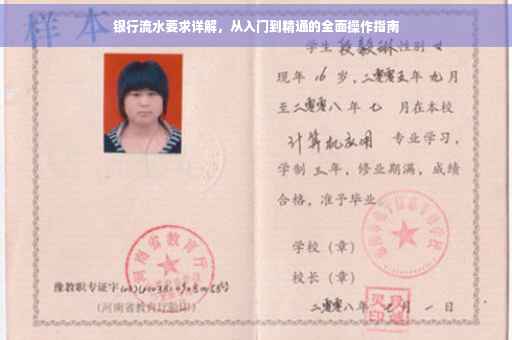 样本
银行流水要求详解，从入门到精通的全面操作指南
学生 段毅琳 性别 女
现年 16 岁，二零零五年 九 月
至二零零八年 七 月在本校
计算机应用 专业学习，
学制 三 年，修业期满，成绩
合格，准予毕业
学校（章）
校长（章）
二零零八年 七 月 一 日
河南省教育厅
豫教职专证字
（河南省教育厅验印）